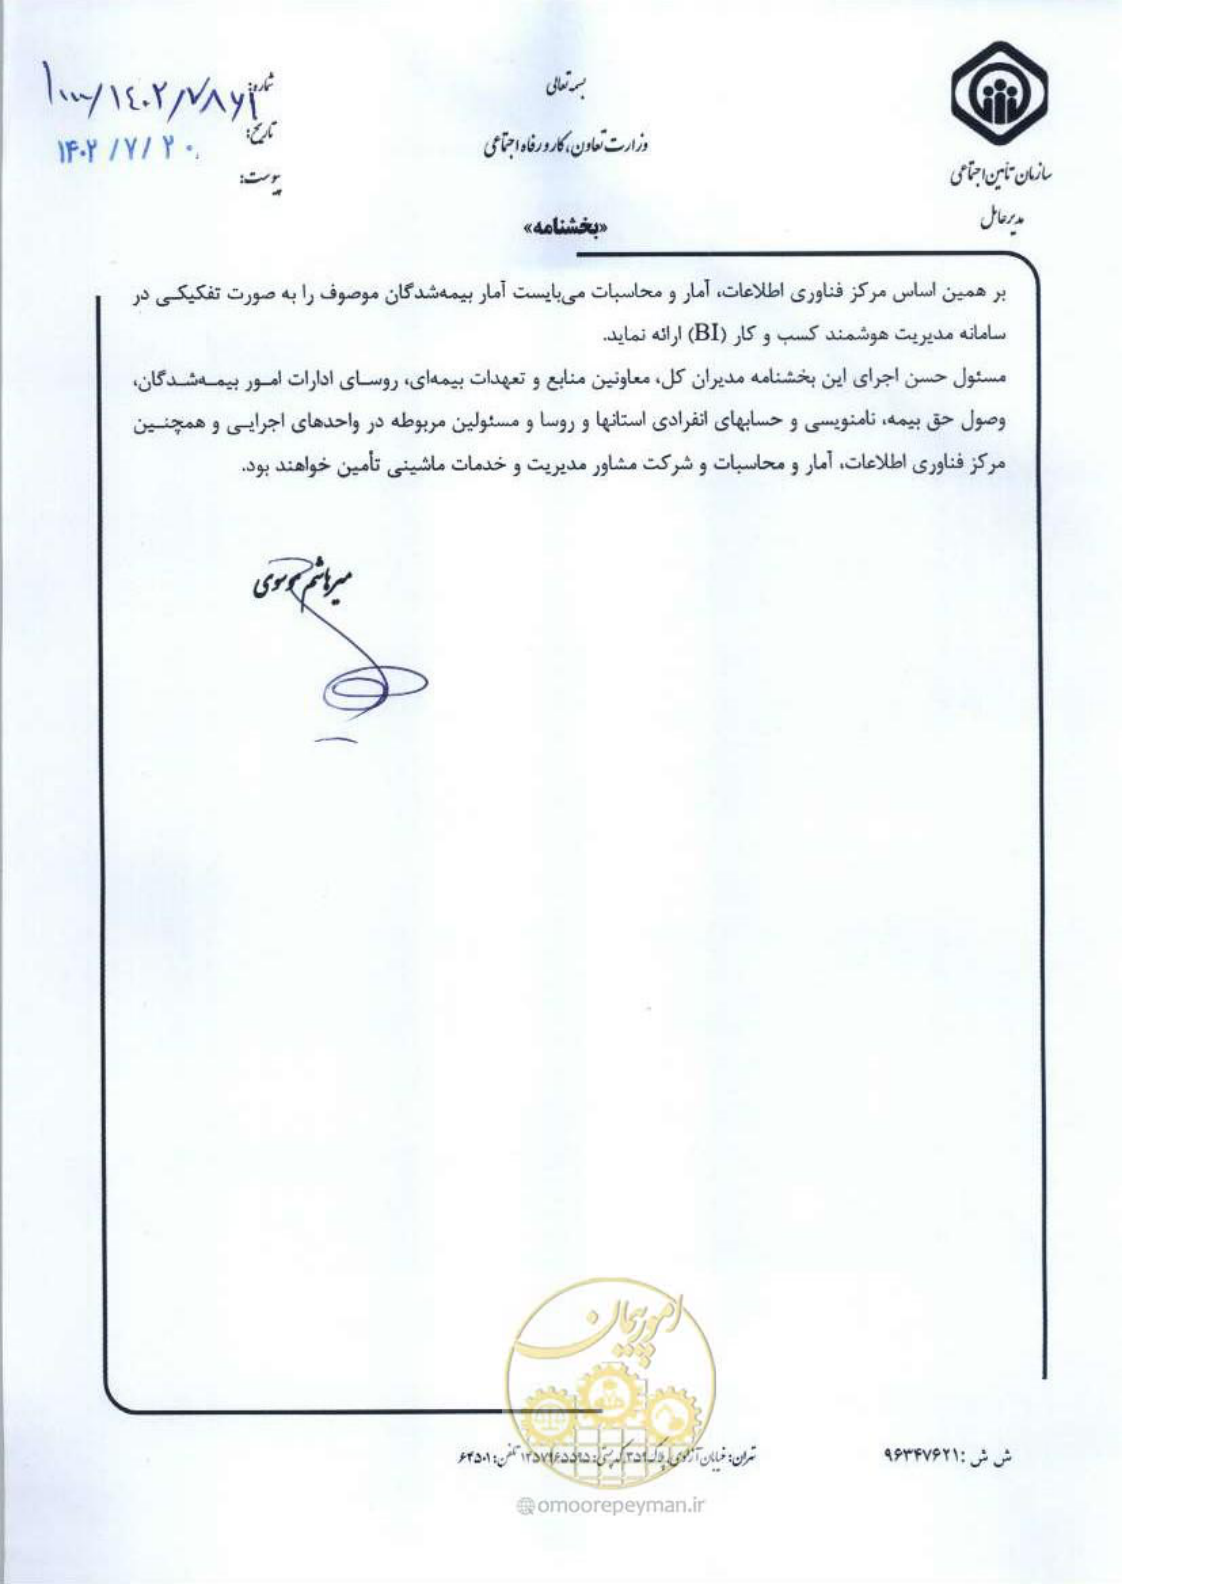 بسمه تعالی
وزارت تعاون، کار و رفاه اجتماعی
سازمان تأمین اجتماعی
مدیرعامل
شماره:
تاریخ: ۱۴۰۲/۷/۲۰
پیوست:
«بخشنامه»
بر همین اساس مرکز فناوری اطلاعات، آمار و محاسبات می‌بایست آمار بیمه‌شدگان موصوف را به صورت تفکیکی در
سامانه مدیریت هوشمند کسب و کار (BI) ارائه نماید.
مسئول حسن اجرای این بخشنامه مدیران کل، معاونین منابع و تعهدات بیمه‌ای، روسای ادارات امور بیمه‌شدگان،
وصول حق بیمه، نامنویسی و حسابهای انفرادی استانها و روسا و مسئولین مربوطه در واحدهای اجرایی و همچنین
مرکز فناوری اطلاعات، آمار و محاسبات و شرکت مشاور مدیریت و خدمات ماشینی تأمین خواهند بود.
میرهاشم موسوی
امور پیمان
ش ش :۹۶۳۴۷۶۲۱
تهران: خیابان آزادی، پلاک ۳۵۹ کد پستی: تلفن: ۶۴۵۰۱
omoorepeyman.ir